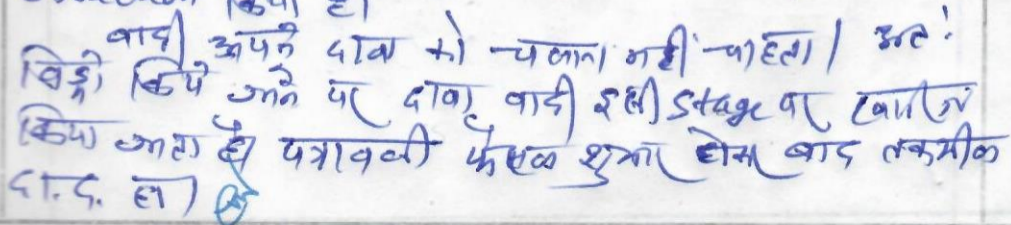 किया है।
वादी अपने दावा को चलाना नहीं चाहता। अतः
विड्रो किये जाने पर दावा वादी इसी Stage पर खारिज
किया जाता है पत्रावली फैसल शुमार होकर बाद तकमील
दा.द. हो।